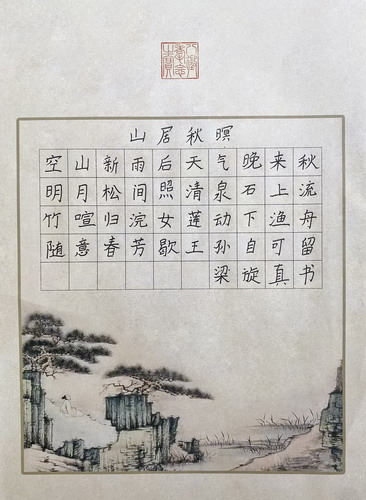 山居秋暝
空山新雨后天气晚来秋
明月松间照清泉石上流
竹喧归浣女莲动下渔舟
随意春芳歇王孙自可留
梁旋真书